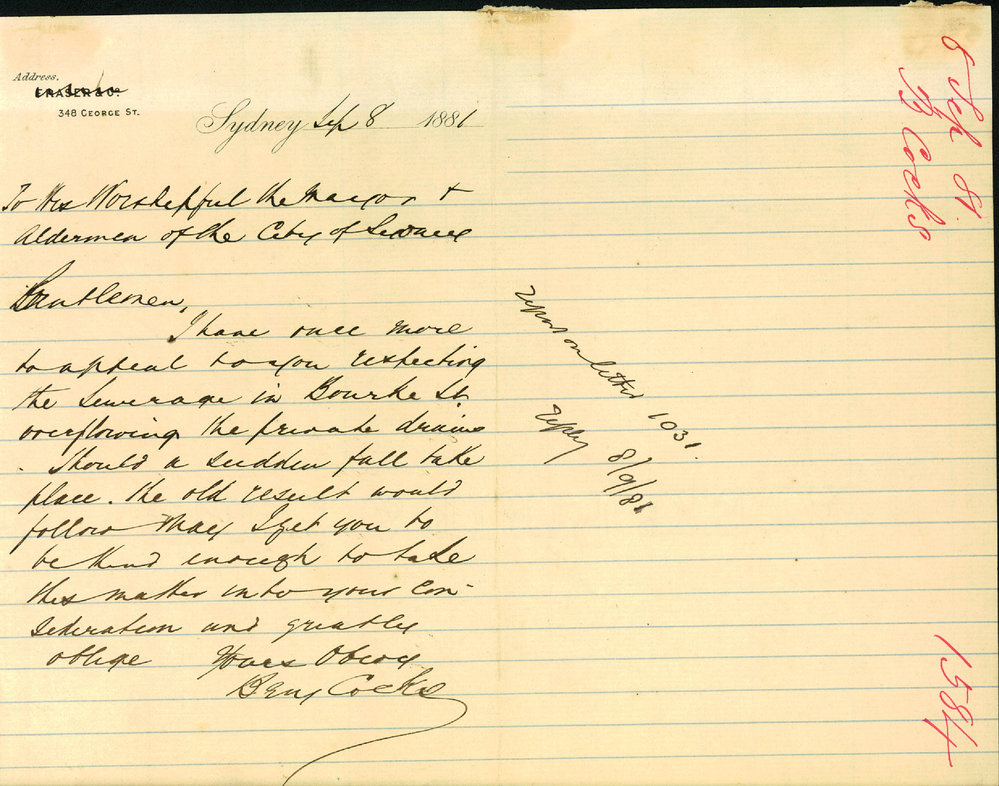 Address.
FRASER & Co.
348 GEORGE ST.
Sydney Sep 8 1881
To His Worshipful the Mayor &
Aldermen of the City of Sydney
Gentlemen,
I have once more
to appeal to you respecting
the Sewerage in Bourke St.
overflowing the private drains
. Should a sudden fall take
place. the old result would
follow May I get you to
be kind enough to take
this matter into your Con-
sideration and greatly
oblige Yours Obdy
Benj Cocks
on letter 1031.
Reply 8/9/81
8 Sep 81.
B Cocks
1584